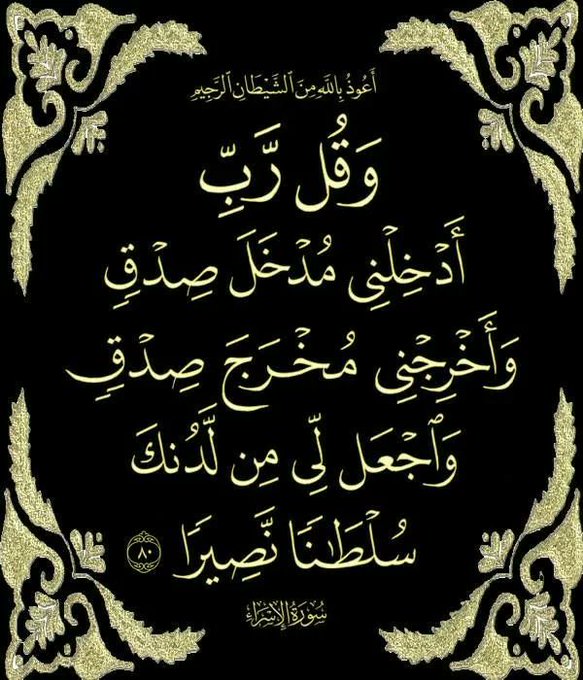 أَعُوذُ بِاللَّهِ مِنَ الشَّيْطَانِ الرَّجِيمِ
وَقُل رَّبِّ
أَدْخِلْنِي مُدْخَلَ صِدْقٍ
وَأَخْرِجْنِي مُخْرَجَ صِدْقٍ
وَٱجْعَل لِّي مِن لَّدُنكَ
سُلْطَٰنًا نَّصِيرًا ٨٠
سُورَةُ الإِسْرَاءِ